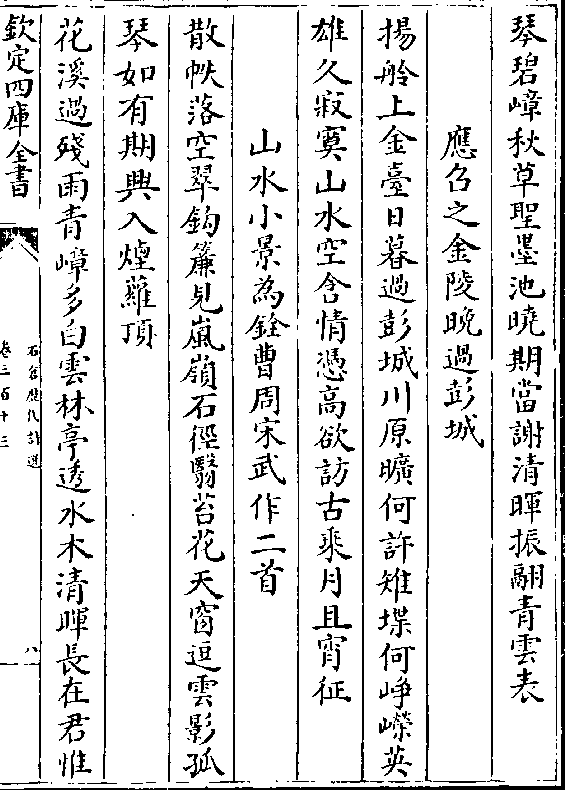 琴碧嶂秋草聖墨池曉期當謝清暉振翮青雲表
應召之金陵晚過彭城
揚舲上金臺日暮過彭城川原曠何許雉堞何崢嶸英
雄久寂寞山水空含情憑高欲訪古乘月且宵征
山水小景為銓曹周宋武作二首
散帙落空翠鈎簾見嵐嶺石徑翳苔花天窗逗雲影孤
琴如有期興入煙蘿頂
花溪過殘雨青嶂多白雲林亭透水木清暉長在君惟
欽定四庫全書
石倉歷代詩選
卷三百十三
八